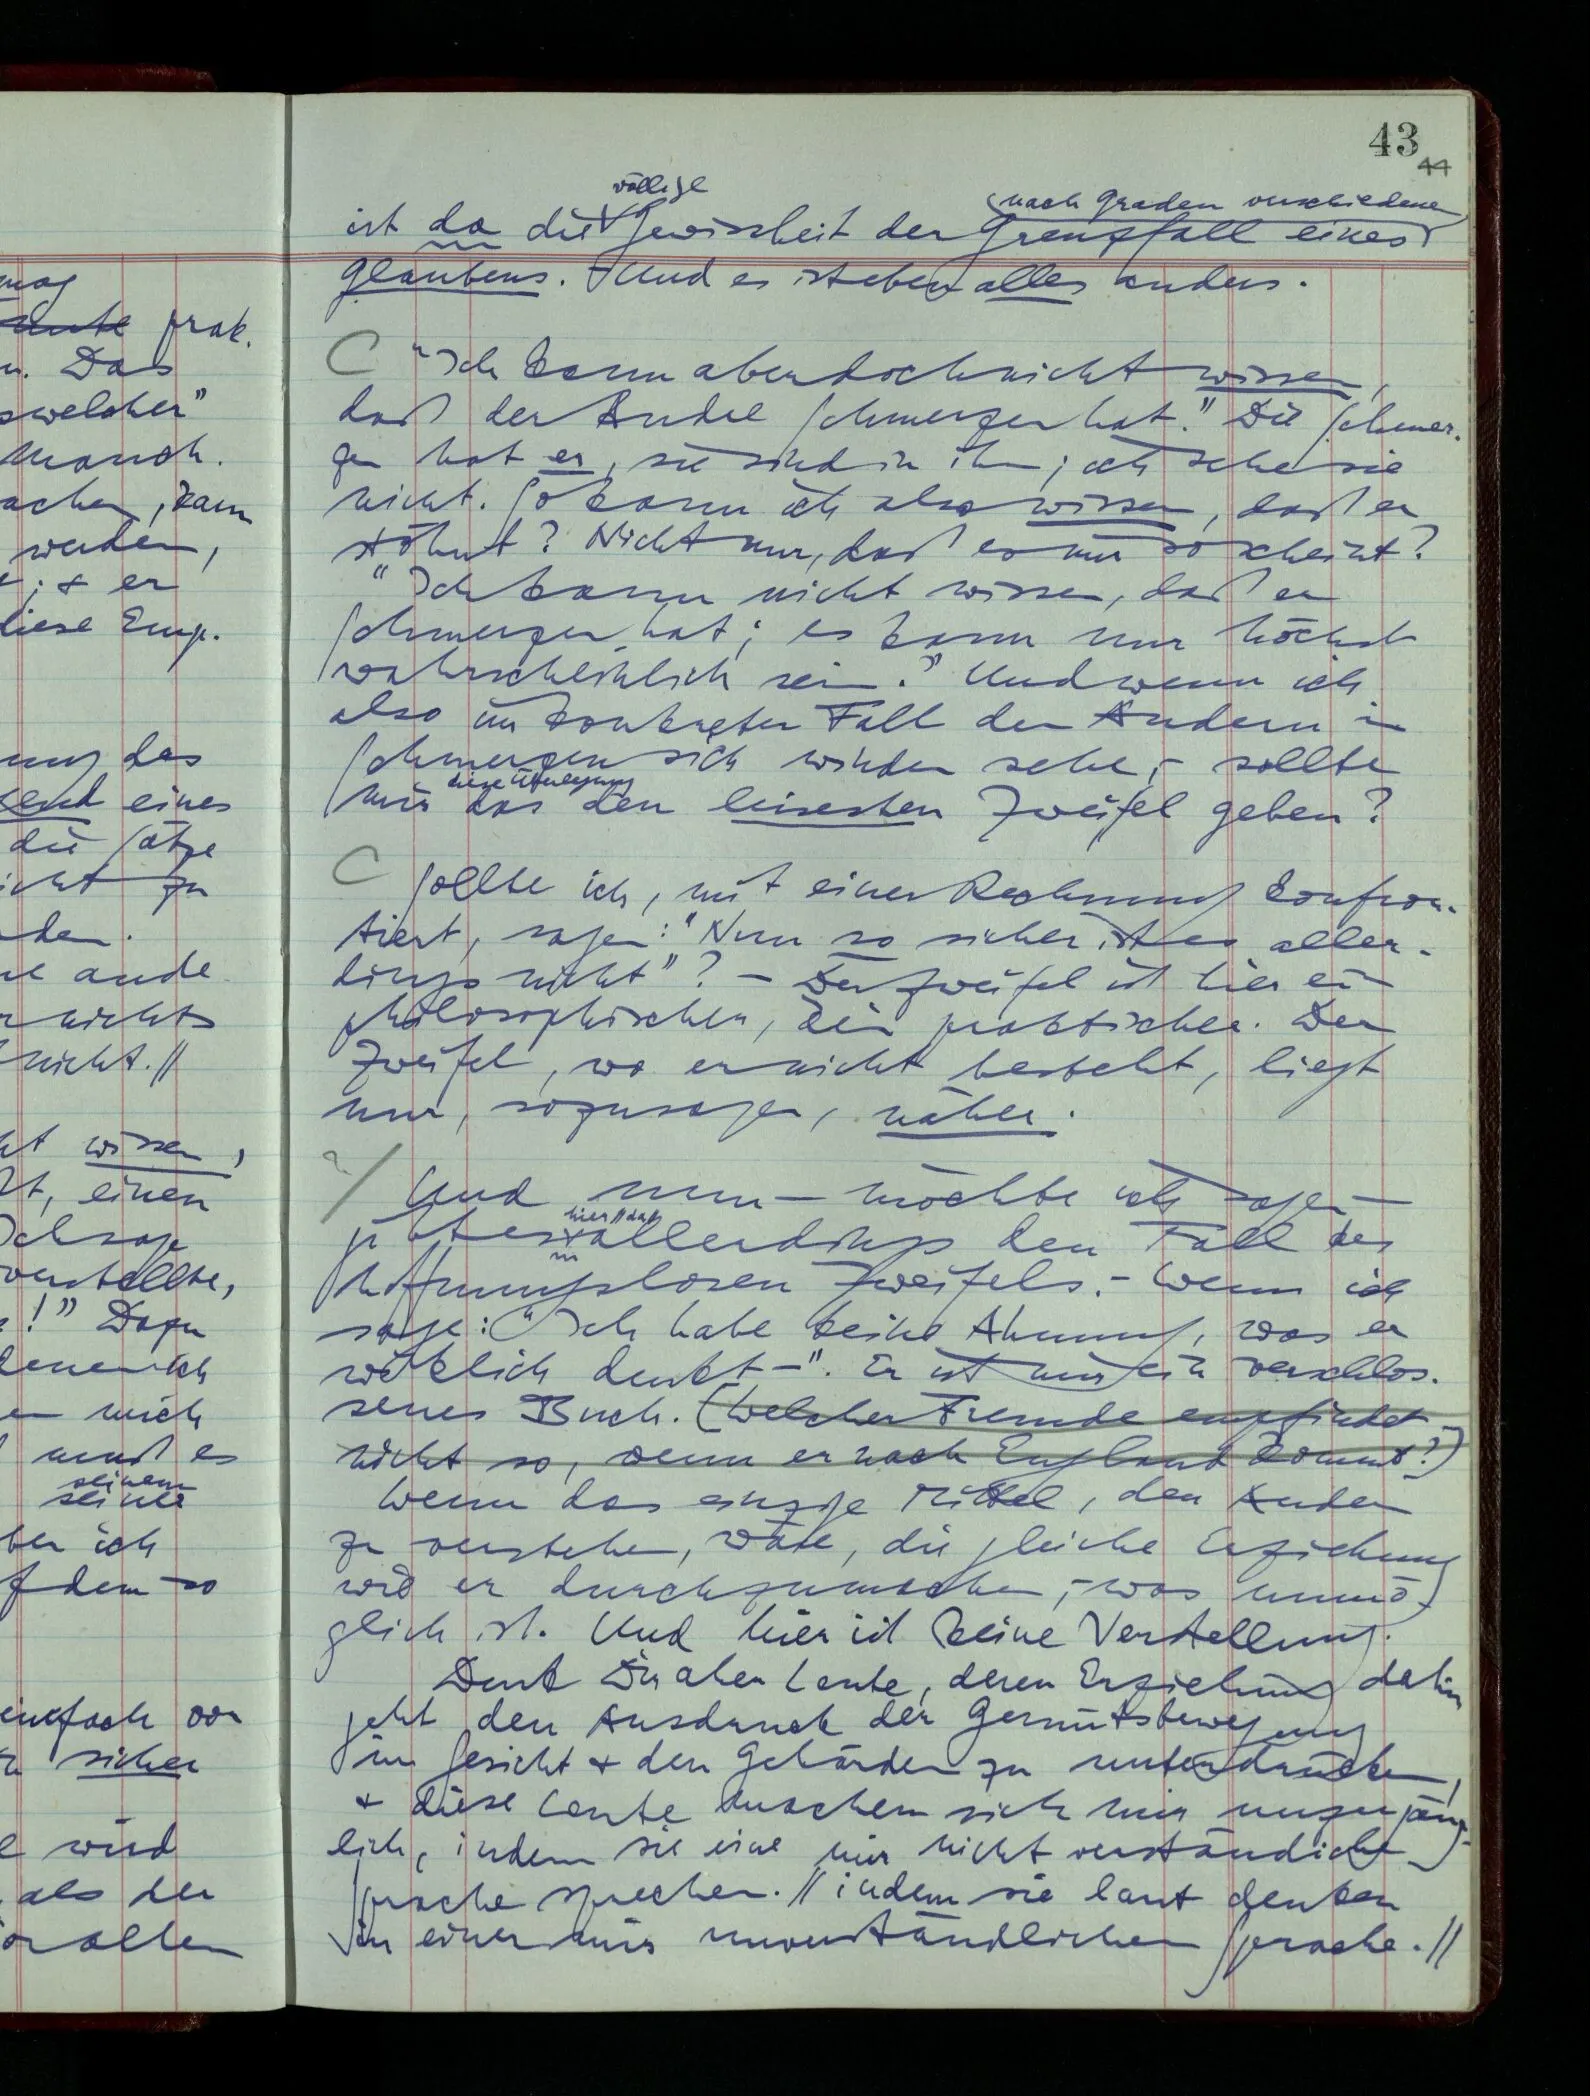 mag
prak.
n. Das
swelcher"
Manch.
achen, kann
werden,
; & er
diese Emp.
ung des
eines
die Sätze
nicht zu
den.
ande
nichts
nicht.//
ht wissen,
einen
Ich sage
verstellte,
!" Dazu
denen ich
mich
muß es
seinem
seine
ber ich
f dem so
einfach von
sicher
wird
als der
vor allem
43
44
völlige
nach Graden verschiedenen
ist da die Gewissheit der Grenzfall eines
Glaubens. Und es ist eben alles anders.
C "Ich kann aber doch nicht wissen,
daß der Andre Schmerzen hat." Die Schmer-
zen hat er, sie sind in ihm; ich sehe sie
nicht. So kann ich also wissen, daß er
stöhnt? Nicht nur, daß es mir so scheint?
"Ich kann nicht wissen, daß er
Schmerzen hat; es kann nur höchst
wahrscheinlich sein." Und wenn ich
also im konkreten Fall den Andern in
Schmerzen sich winden sehe, – sollte
diese Überlegung
mir das den leisesten Zweifel geben?
C Sollte ich, mit einer Rechnung konfron-
tiert, sagen: "Nun so sicher ist es aller-
dings nicht"? – Der Zweifel ist hier ein
philosophischer, kein praktischer. Der
Zweifel, wo er nicht besteht, liegt
nur, sozusagen, näher.
?/ Und nun – möchte ich sagen –
hier//da//
gibt es allerdings den Fall des
hoffnungslosen Zweifels. – Wenn ich
sage: "Ich habe keine Ahnung, was er
wirklich denkt –". Er ist mir ein verschlos-
senes Buch. (Welcher Fremde empfindet
nicht so, wenn er nach England kommt?)
Wenn das einzige Mittel, den Andern
zu verstehen, wäre, die gleiche Erziehung
wie er durchzumachen, – was unmö-
glich ist. Und hier ist keine Verstellung.
Denk Dir aber Leute, deren Erziehung dahin
geht den Ausdruck der Gemütsbewegung
im Gesicht & den Gebärden zu unterdrücken,
& diese Leute machen sich mir unzugäng-
lich, indem sie eine mir nicht verständliche
Sprache sprechen. // indem sie laut denken
in einer mir unverständlichen Sprache. //